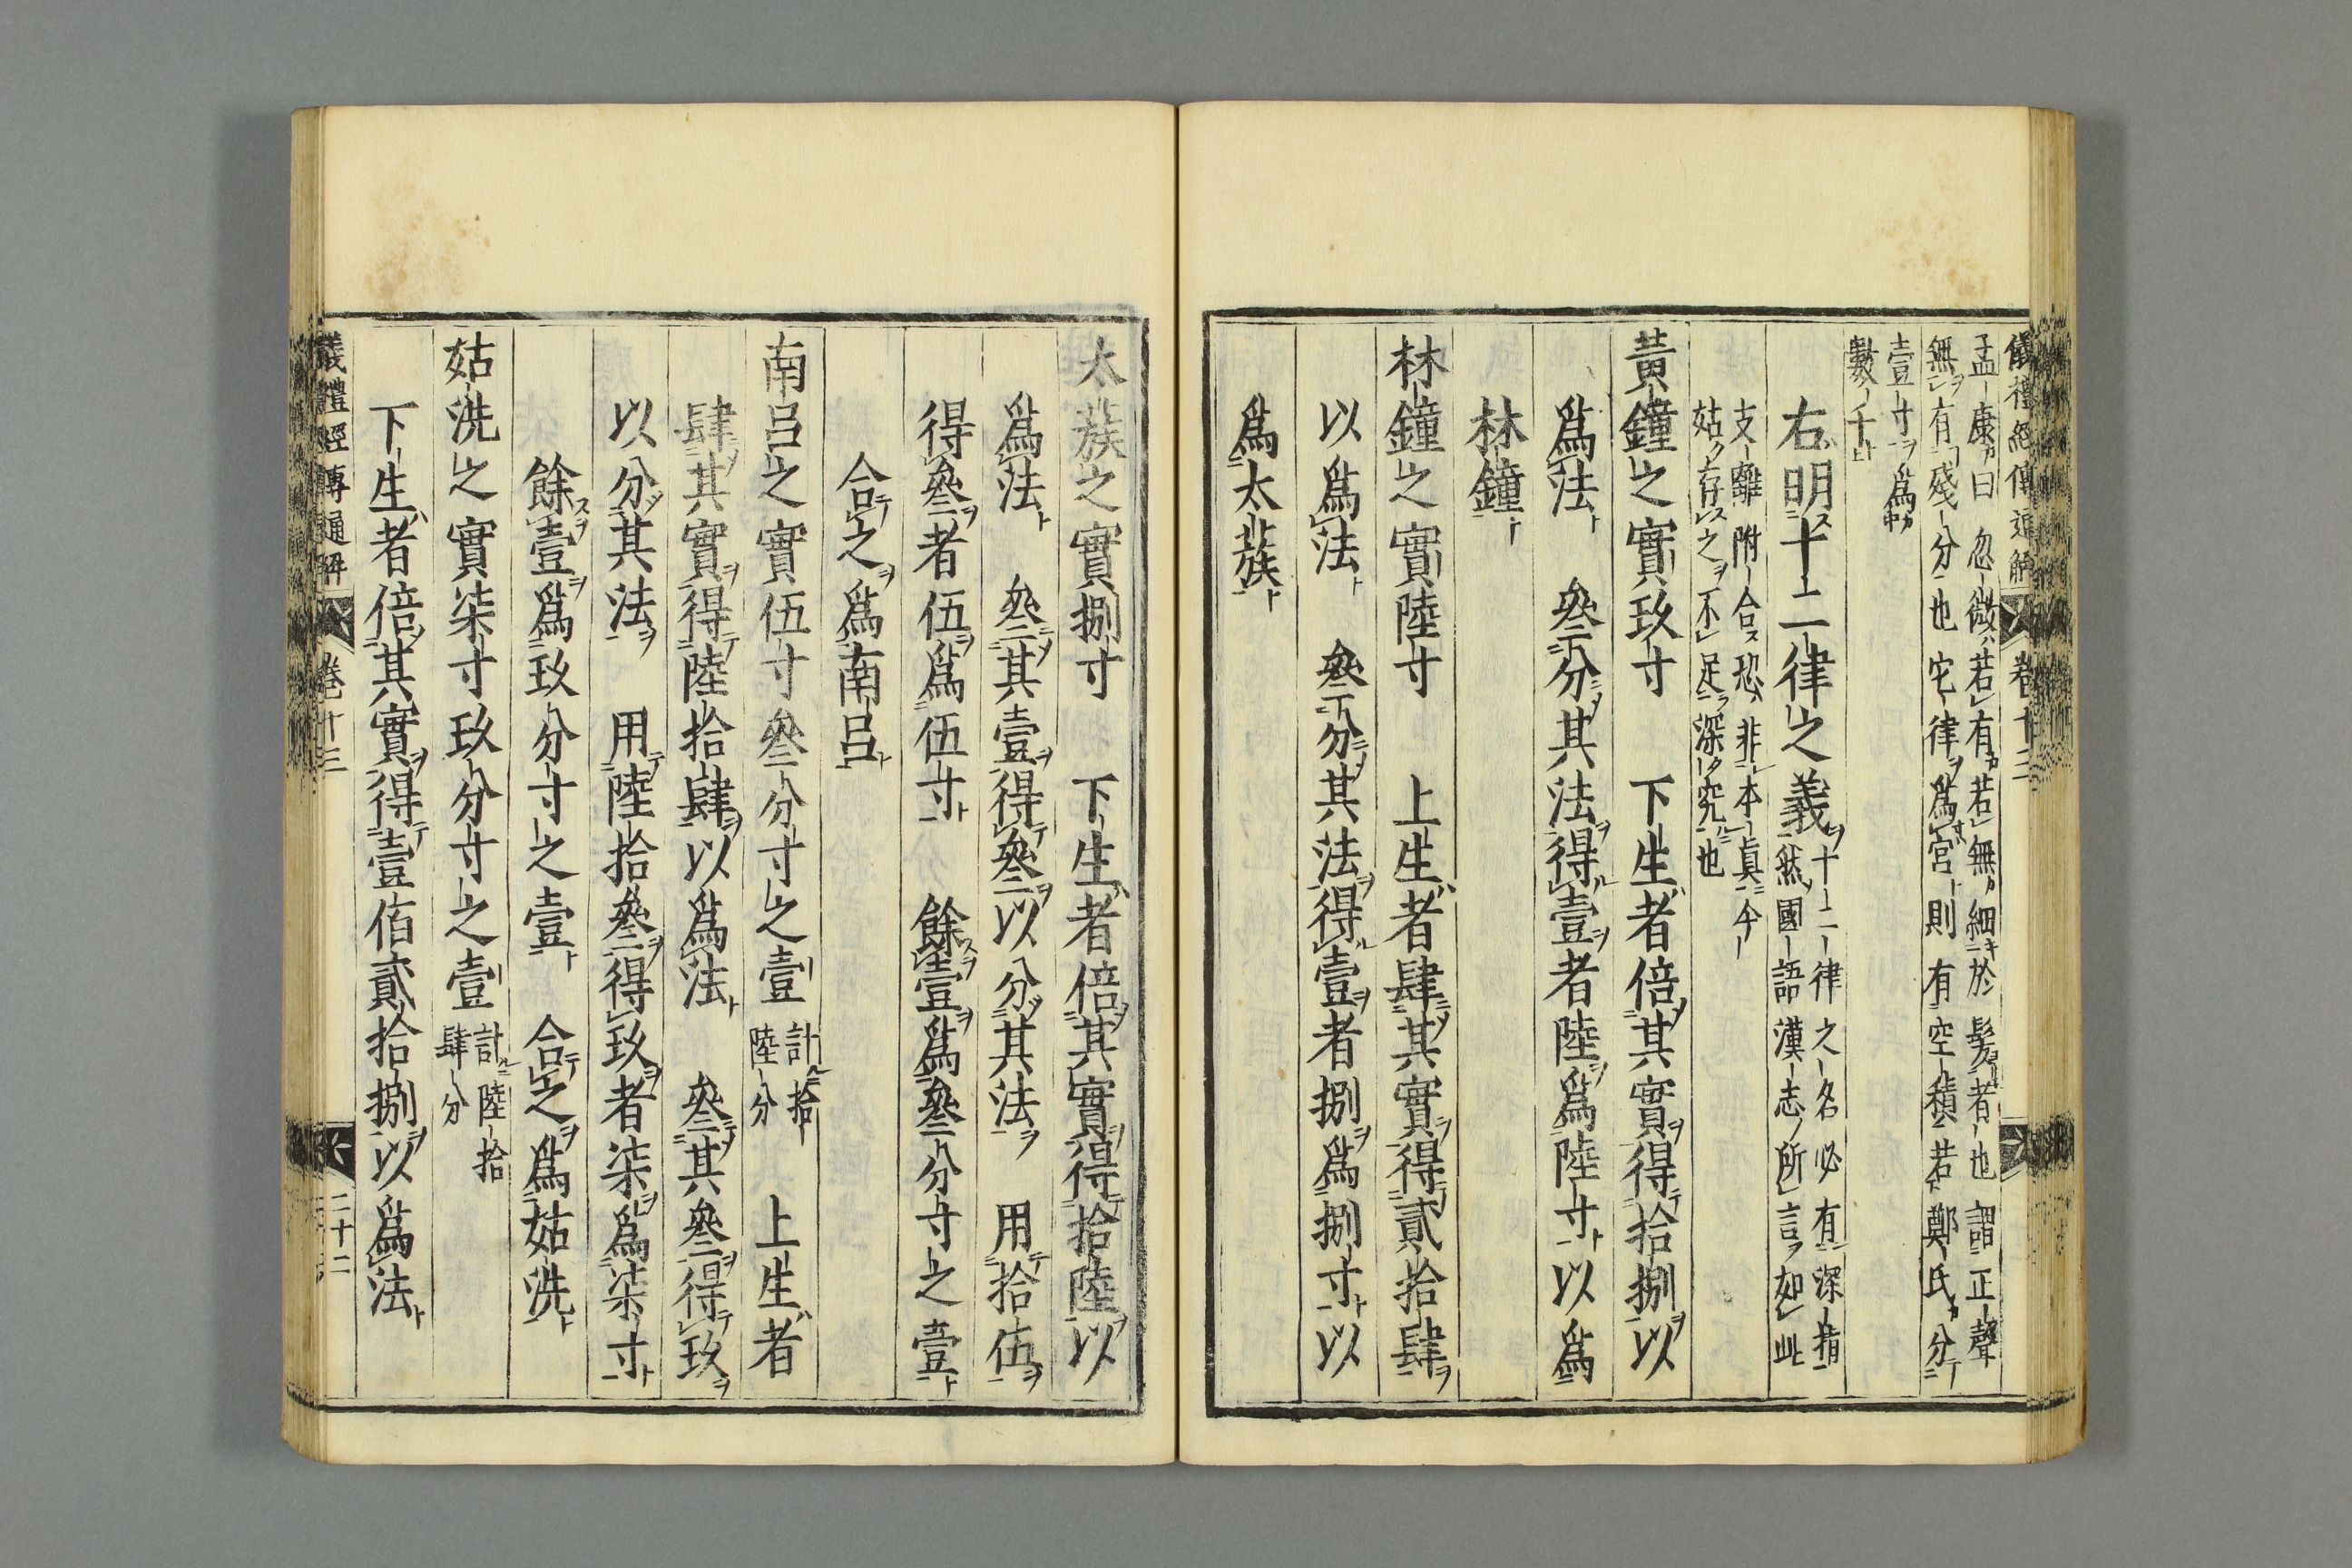 儀禮經傳通解 卷十三
孟康曰忽微若有若無細於髮者也謂正聲
無有殘分也宅律爲宮則有空積若鄭氏分
壹寸爲
數千
右明十二律之義十二律之名必有深指
然國語漢志所言如此
支離附合恐非本眞今
姑存之不足深究也
黃鐘之實玖寸 下生者倍其實得拾捌以
爲法 叄分其法得壹者陸爲陸寸以爲
林鐘
林鐘之實陸寸 上生者肆其實得貳拾肆
以爲法 叄分其法得壹者捌爲捌寸以
爲太蔟
太蔟之實捌寸 下生者倍其實得拾陸以
爲法 叄其壹得叄以分其法 用拾伍
得叄者伍爲伍寸 餘壹爲叄分寸之壹
合之爲南呂
南呂之實伍寸叄分寸之壹計拾
陸分 上生者
肆其實得陸拾肆以爲法 叄其叄得玖
以分其法 用陸拾叄得玖者柒爲柒寸
餘壹爲玖分寸之壹 合之爲姑洗
姑洗之實柒寸玖分寸之壹計陸拾
肆分
下生者倍其實得壹佰貳拾捌以爲法
儀禮經傳通解 卷十三 二十二